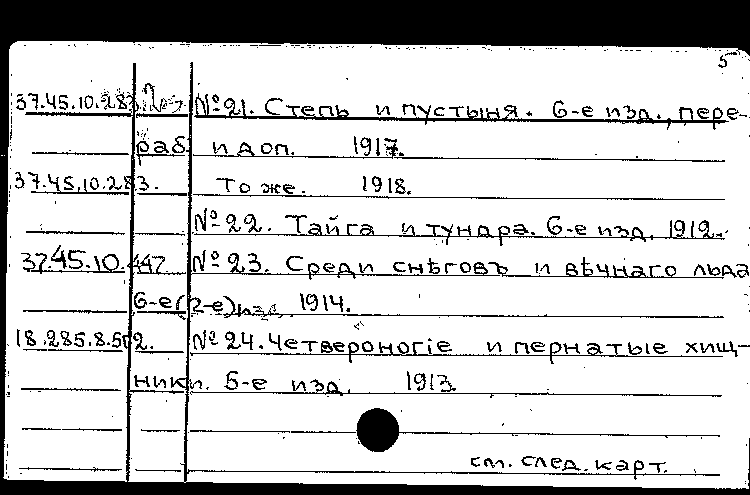 5
37.45.10.283 №21. Степь и пустыня. 6-е изд., пере-
раб. и доп. 1917.
37.45.10.283. То же. 1918.
№22. Тайга и тундра. 6-е изд. 1912.
37.45.10.447 №23. Среди снѣговъ и вѣчнаго льда
6-е(2-е)изд. 1914.
18.285.8.502. №24. Четвероногіе и пернатые хищ-
ники. 5-е изд. 1913.
см. след. карт.